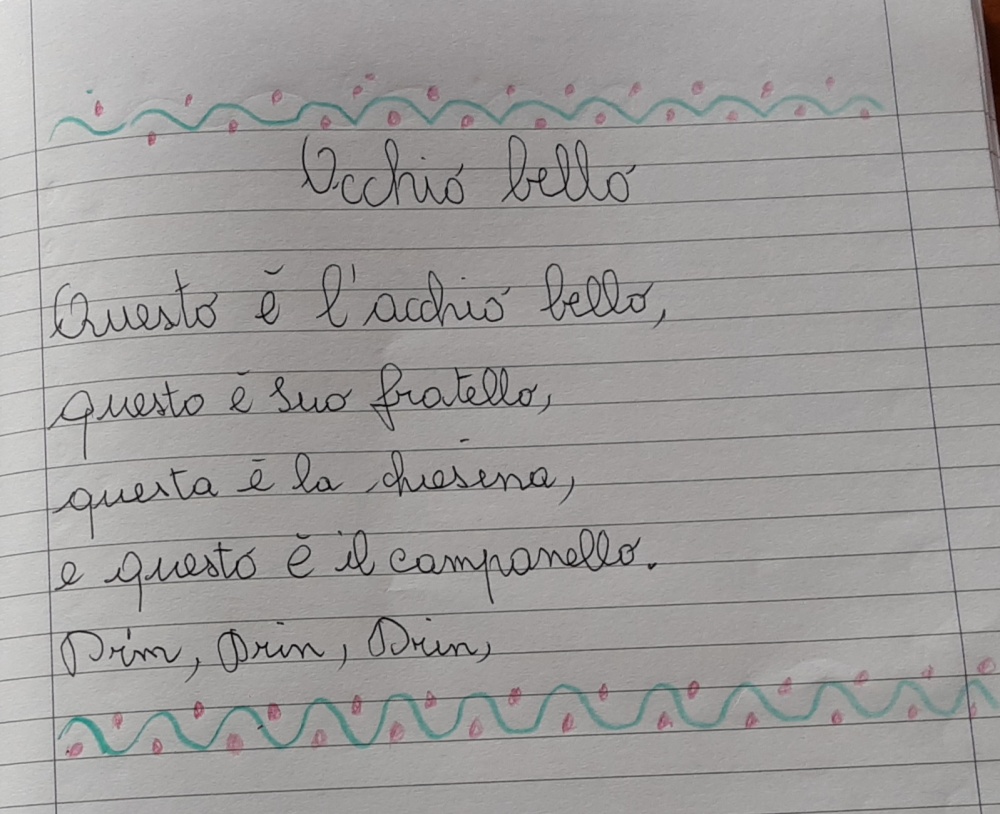 Occhio bello
Questo è l'acchio bello,
questo è suo fratello,
questa è la chiesina,
e questo è il campanello.
Drin, Drin, Drin,